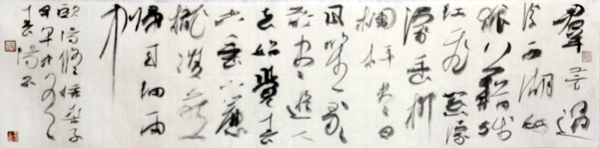 羣芳過
後西湖好
狼籍殘
紅飛絮濛
濛垂柳
欄杆盡日
風笙歌
散盡遊人
去始覺春
空垂下簾
櫳雙燕
歸來細雨
中
歐陽修採桑子